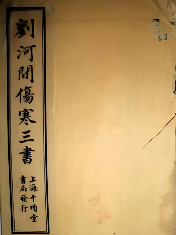 劉河間傷寒三書
上海千頃堂
書局發行